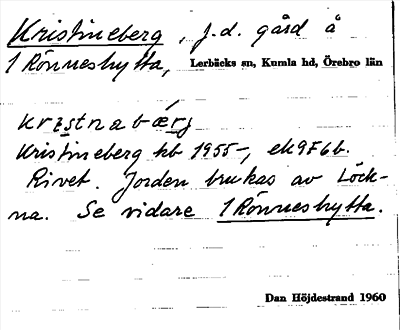 Kristineberg, f.d. gård å
1 Rönneshytta, Lerbäcks sn, Kumla hd, Örebro län
krɪstnabǽrj
Kristineberg kb 1955-, ek 9F6b.
Rivet. Jorden brukas av Löck-
na. Se vidare 1 Rönneshytta.
Dan Höjdestrand 1960